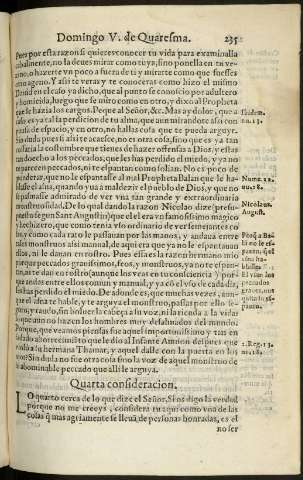 Domingo V. de Quaresma. 235
Pues por esta razon si quieres conocer tu vida para examinalla
cabalmente, no la deues mirar como tuya, sino ponella en tu ve-
zino, o hazerte vn poco a fuera de ti y mirarte como que fuesses
omo ageno. Y assi te veras y te conoceras como hizo el mismo
Dauid en el caso ya dicho, que al punto se conoscio por adultero
y homicida, luego que se miro como en otro, y dixo al Propheta
que le hazia los cargos. Peque al Señor, &c. Mas ay dolor, que a
si es ya tal la perdicion de tu alma, que aun mirandote assi con
de espacio, y en otro, no hallas cosa que te pueda arguyr.
Sin duda pues si assi te acaesce, no es otra cosa, sino que es ya tan
la costumbre que tienes de hazer offensas a Dios, y estas
tan duecho a los peccados, que les has perdido el miedo, y ya no
te parecen peccados, ni te espantan como solian. No es poco de
ponderar, que no le espantasse al mal Propheta Balaam que le ha-
blasse el asna, quando yua a maldezir el pueblo de Dios, y que no
se pasmasse admirado de ver vna tan grande y extraordinaria
monstruosidad. De lo qual dando la razon Nicolao dize (presu-
puesto segun Sant Augustin) que el era vn famosissimo magico
y hechizero, que como tenia vso ordinario de ver semejantes co-
sas y como a cada rato le passauan por las manos, y andaua entre
monstruos assi manual, de aqui era que ya no le espantauan
ellos, ni le dauan en rostro. Pues essa es la razon hermano mio
porque peccados grauissimos, feos, y monstruos, ya no te espan-
tan, ni te dan en rostro (aunque los veas en tu consciencia) y por
que andas entre ellos comun y manual, y ya cō el vso de cada dia,
les has perdido el miedo. De adonde es, que muchas vezes, aun-
que el asna te hable, y te arguya el monstruo, passas por ello se-
guro, y raudo, sin boluer la cabeça a su voz, ni la rienda a la vida
que aun no hazen los hombres muy desalmados del mundo.
Porque, que veamos piensas fue aquel prontissimo y tan en
estado aborrescimiento que le dio al Infante Amnon despues que
violo a su hermana Thamar, y aquel dalle con la puerta en los
ojos? Sin duda no fue otra cosa sino la voz de aquel monstruo de
abominable peccado que alli le arguya.
Quarta consideracion.
LO quarto cerca de lo que dize el Señor. Si os digo la verdad
porque no me creeys, considera tu aqui como vna de las
cosas que mas agriamente se lleua de personas honradas, es el
no ser
nu. 13.
Nume. 22.
nu. 28.
Nicolaus.
August.
Porq a Ba-
lã no le es-
panta, que
su asna ha-
blasse.
El vsar los
peccados
graues, nos
quita su es-
panto.
2. Reg. 13.
nu. 18.